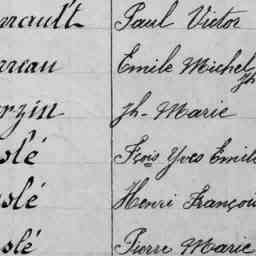 nault Paul Victor
rreau Emile Michel
rzin Jh- Marie
slé Fçois Yves Emile
slé Henri François
slé Pierre Marie